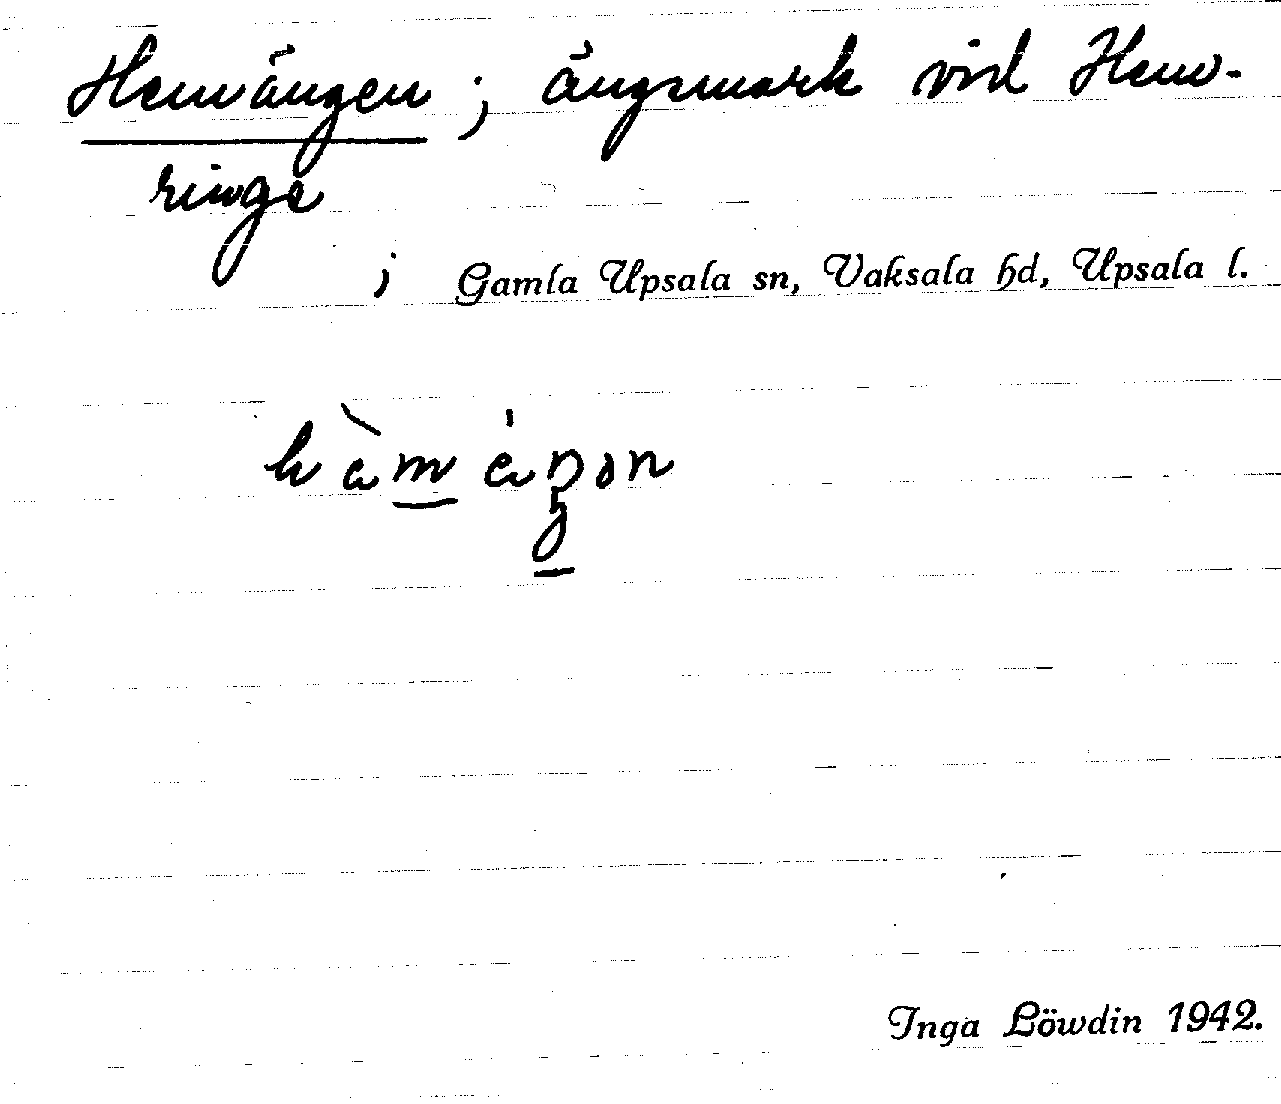 Hemängen; ängsmark vid Hem-
ringe
; Gamla Upsala sn, Vaksala hd, Upsala l.
Inga Löwdin 1942.